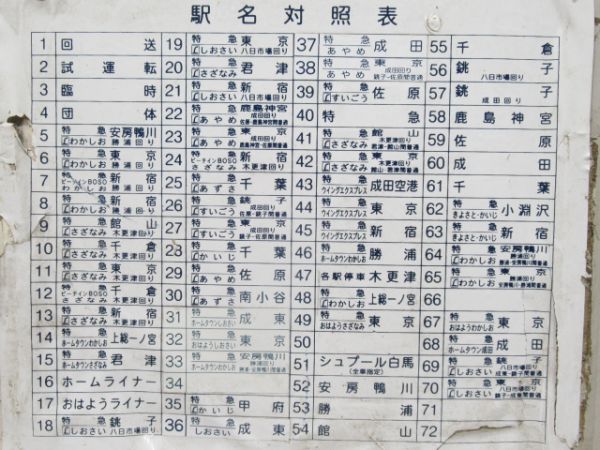 駅名対照表
1 回送
2 試運転
3 臨時
4 団体
5 特急 わかしお 安房鴨川 勝浦回り
6 特急 わかしお 東京 勝浦回り
7 特急 ビーチインBOSO わかしお 新宿 勝浦回り
8 特急 わかしお 新宿 勝浦回り
9 特急 さざなみ 館山 木更津回り
10 特急 さざなみ 千倉 木更津回り
11 特急 さざなみ 東京 木更津回り
12 特急 ビーチインBOSO さざなみ 千倉 木更津回り
13 特急 さざなみ 新宿 木更津回り
14 特急 ホームタウンわかしお 上総一ノ宮
15 特急 ホームタウンさざなみ 君津
16 ホームライナー
17 おはようライナー
18 特急 しおさい 銚子 八日市場回り
19 特急 しおさい 東京 八日市場回り
20 特急 さざなみ 君津
21 特急 しおさい 新宿 八日市場回り
22 特急 あやめ 鹿島神宮 成田回り 佐原・鹿島神宮間普通
23 特急 あやめ 東京 成田回り 鹿島神宮・佐原間普通
24 特急 ビーチインBOSO さざなみ 新宿 木更津回り
25 特急 あずさ 千葉
26 特急 すいごう 銚子 成田回り 佐原・銚子間普通
27 特急 すいごう 東京 成田回り 銚子・佐原間普通
28 特急 かいじ 千葉
29 特急 あやめ 佐原
30 特急 あずさ 南小谷
31 特急 ホームタウンしおさい 成東
32 特急 おはようしおさい 東京
33 特急 ホームタウンわかしお 安房鴨川 勝浦回り
34
35 特急 かいじ 甲府
36 特急 しおさい 成東
37 特急 あやめ 成田
38 特急 あやめ 東京 成田回り 銚子・佐原間普通
39 特急 すいごう 佐原
40 特急
41 特急 さざなみ 館山 木更津回り 君津・館山間普通
42 特急 さざなみ 東京 木更津回り
43 特急 ウイングエクスプレス 成田空港
44 特急 ウイングエクスプレス 東京
45 特急 ウイングエクスプレス 新宿
46 特急 ホームタウンわかしお 勝浦
47 各駅停車 木更津
48 特急 わかしお 上総一ノ宮
49 特急 おはようさざなみ 東京
50
51 シュプール白馬 (全車指定)
52 安房鴨川
53 勝浦
54 館山
55 千倉
56 銚子 八日市場回り
57 銚子 成田回り
58 鹿島神宮
59 佐原
60 成田
61 千葉
62 特急 きよさと・かいじ 小淵沢
63 特急 きよさと・かいじ 新宿
64 特急 わかしお 安房鴨川 勝浦回り
65 特急 わかしお 東京 勝浦回り
66
67 特急 おはようわかしお 東京
68 特急 ホームタウン成田 成田
69 特急 しおさい 銚子 八日市場回り 成東・銚子間普通
70 特急 しおさい 東京 八日市場回り 銚子・成東間普通
71
72